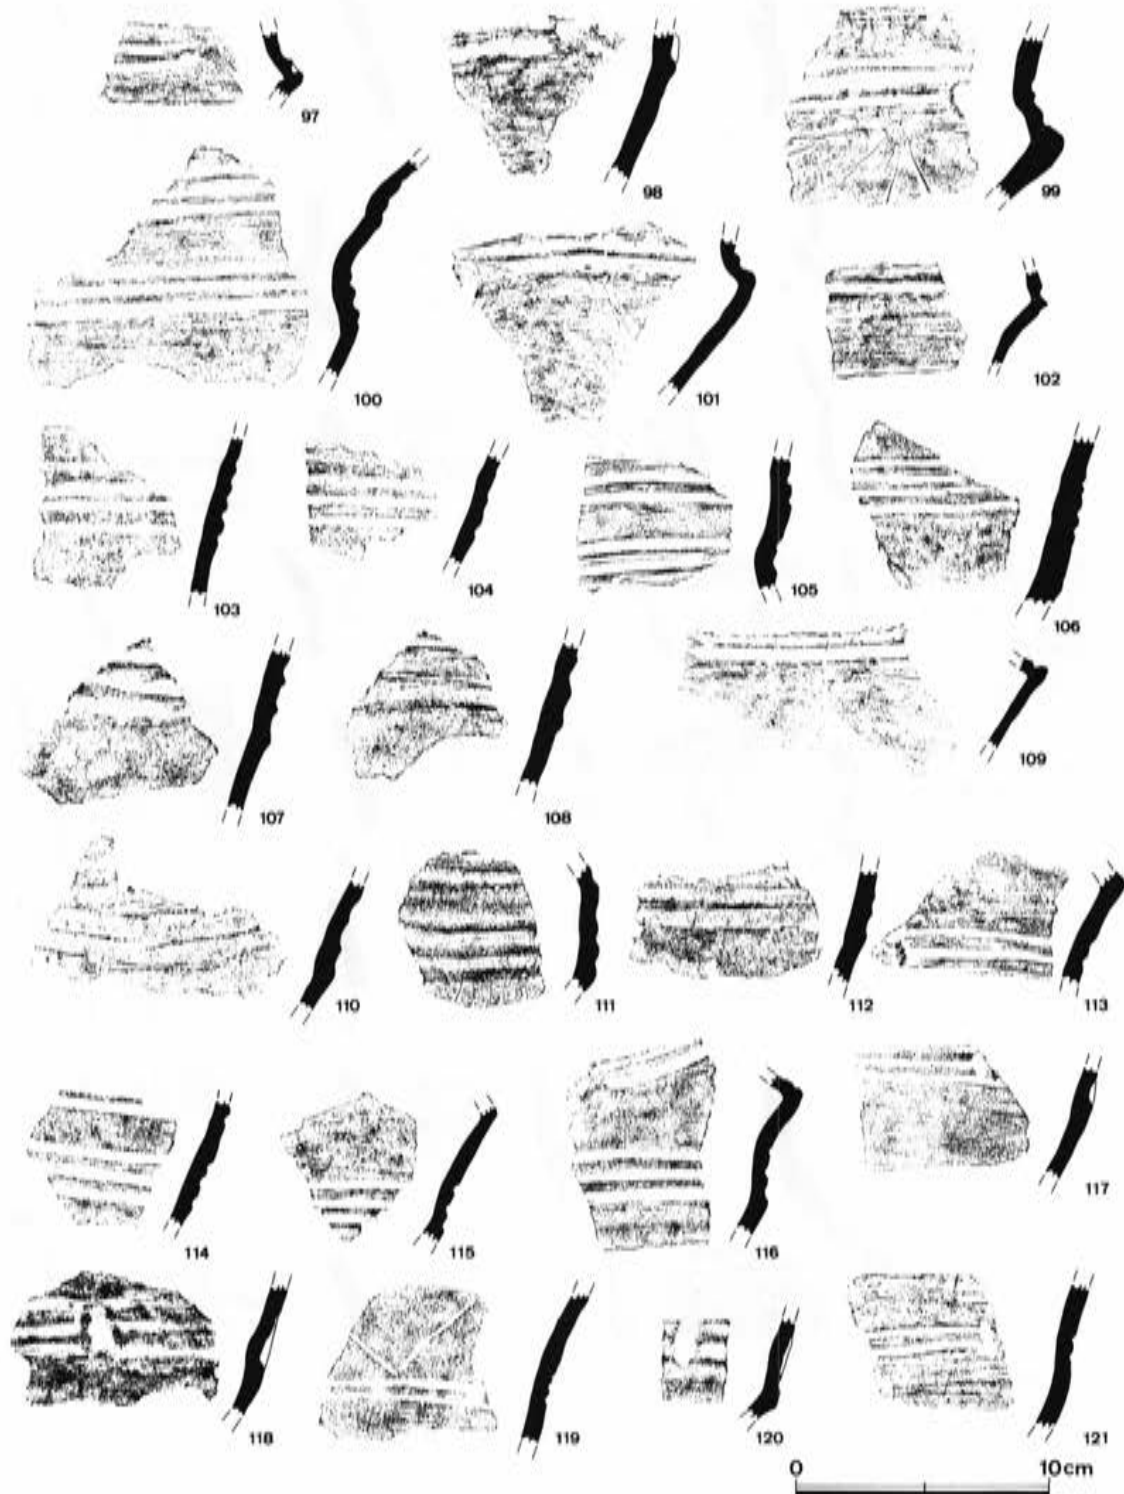 97
98
99
100
101
102
103
104
105
106
107
108
109
110
111
112
113
114
115
116
117
118
119
120
121
0 10cm